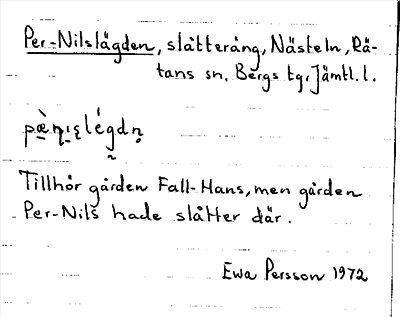 Per-Nilslägden, slåtteräng, Nästeln, Rä-
tans sn, Bergs tg, Jämtl. l.
Tillhör gården Fall-Hans, men gården
Per-Nils hade slåtter där.
Ewa Persson 1972